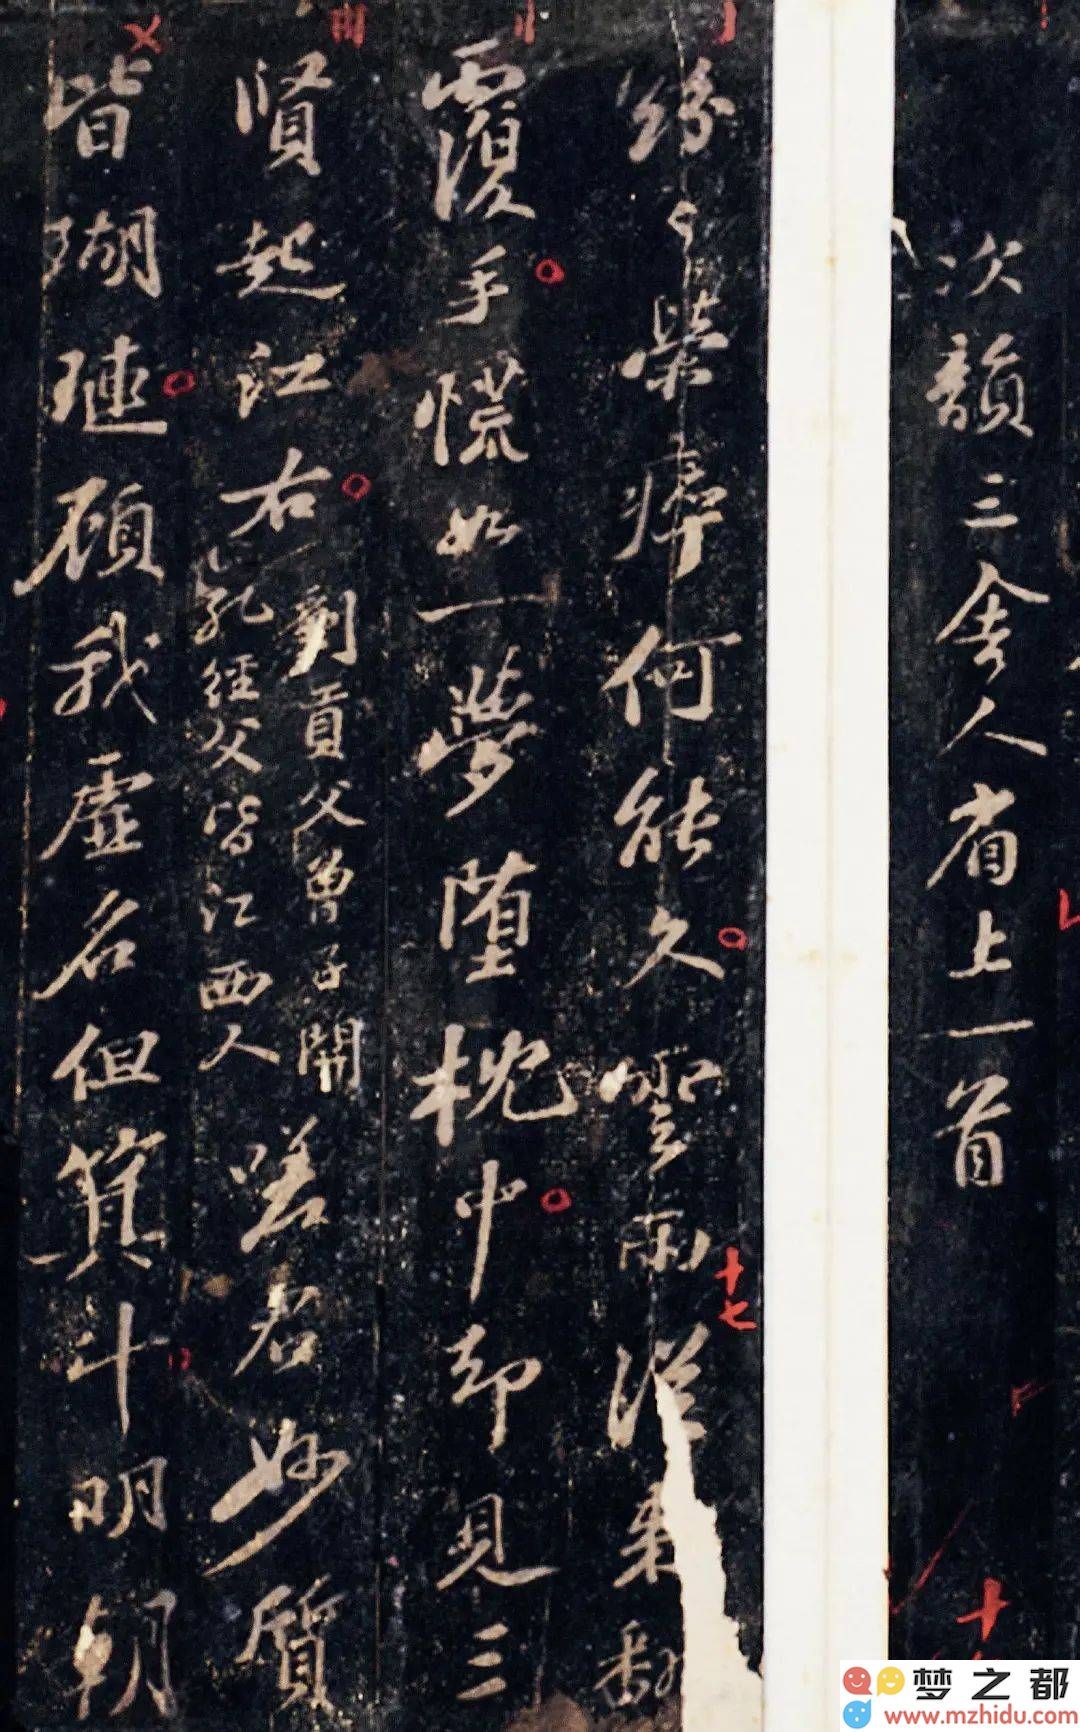 次韻三舍人省上一首
紛〻榮瘁何能久雲雨從来翻
覆手慌如一夢墮枕中却見三
賢起江右
劉貢父曾子開
孔經父皆江西人
嗟君妙質
皆瑚璉顧我虛名但箕斗明朝
十七
十
梦之都
www.mzhidu.com